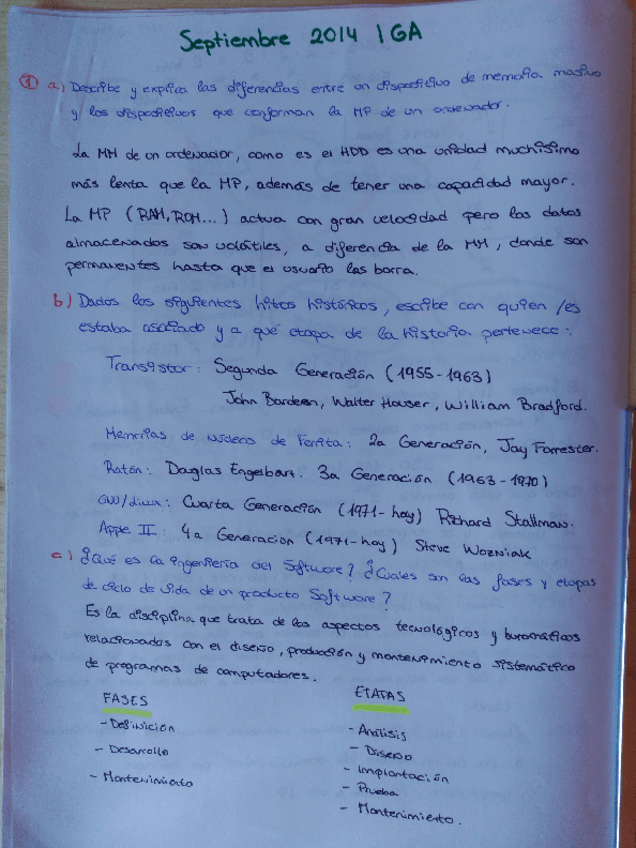 Septiembre 2014 IGA
① a) Describe y explica las diferencias entre un dispositivo de memoria masivo
y los dispositivos que conforman la MP de un ordenador.
La MM de un ordenador, como es el HDD es una unidad muchísimo
más lenta que la MP, además de tener una capacidad mayor.
La MP (RAM, ROM...) actua con gran velocidad pero los datos
almacenados son volátiles, a diferencia de la MM, donde son
permanentes hasta que el usuario las borra.
b) Dados los siguientes hitos históricos, escribe con quien/es
estaba asociado y a qué etapa de la historia pertenece:
Transistor: Segunda Generación (1955-1963)
John Bardeen, Walter Houser, William Bradford.
Memorias de núcleos de Ferrita: 2a Generación, Jay Forrester.
Ratón: Douglas Engelbart. 3a Generación (1963-1970)
GNU/Linux: Cuarta Generación (1971-hoy) Richard Stallman.
Apple II: 4a Generación (1971-hoy) Steve Wozniak
c) ¿Qué es la ingeniería del Software? ¿Cuales son las fases y etapas
de ciclo de vida de un producto Software?
Es la disciplina que trata de los aspectos tecnológicos y burocráticos
relacionados con el diseño, producción y mantenimiento sistemático
de programas de computadores.
FASES
- Definición
- Desarrollo
- Mantenimiento
ETAPAS
- Análisis
- Diseño
- Implantación
- Prueba
- Mantenimiento.